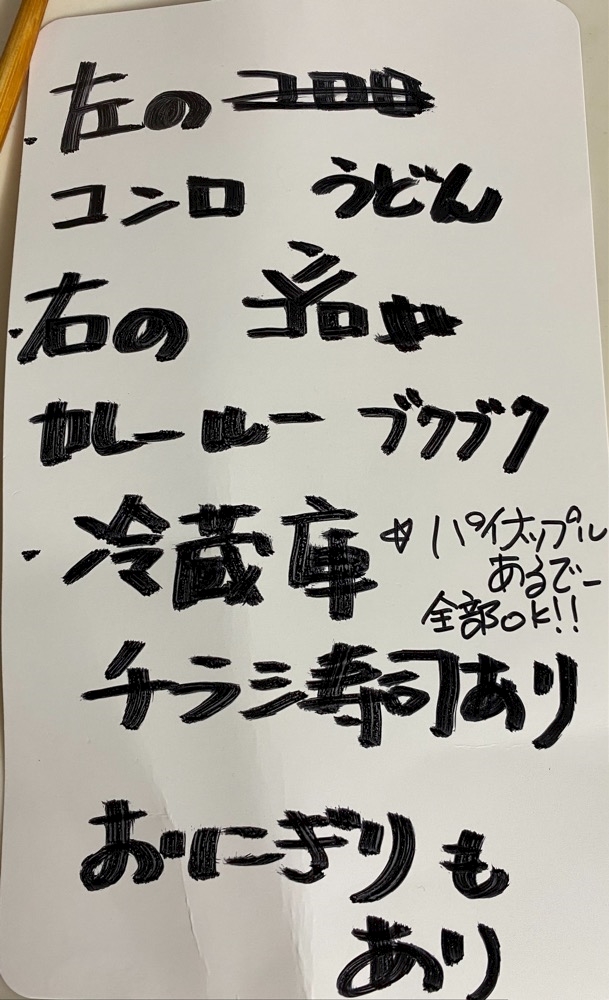 ・左の
コンロ うどん
・右の コンロ
カレールー ブクブク
・冷蔵庫
☆パイナップル
あるでー
全部OK!!
チラシ寿司あり
おにぎりも
あり